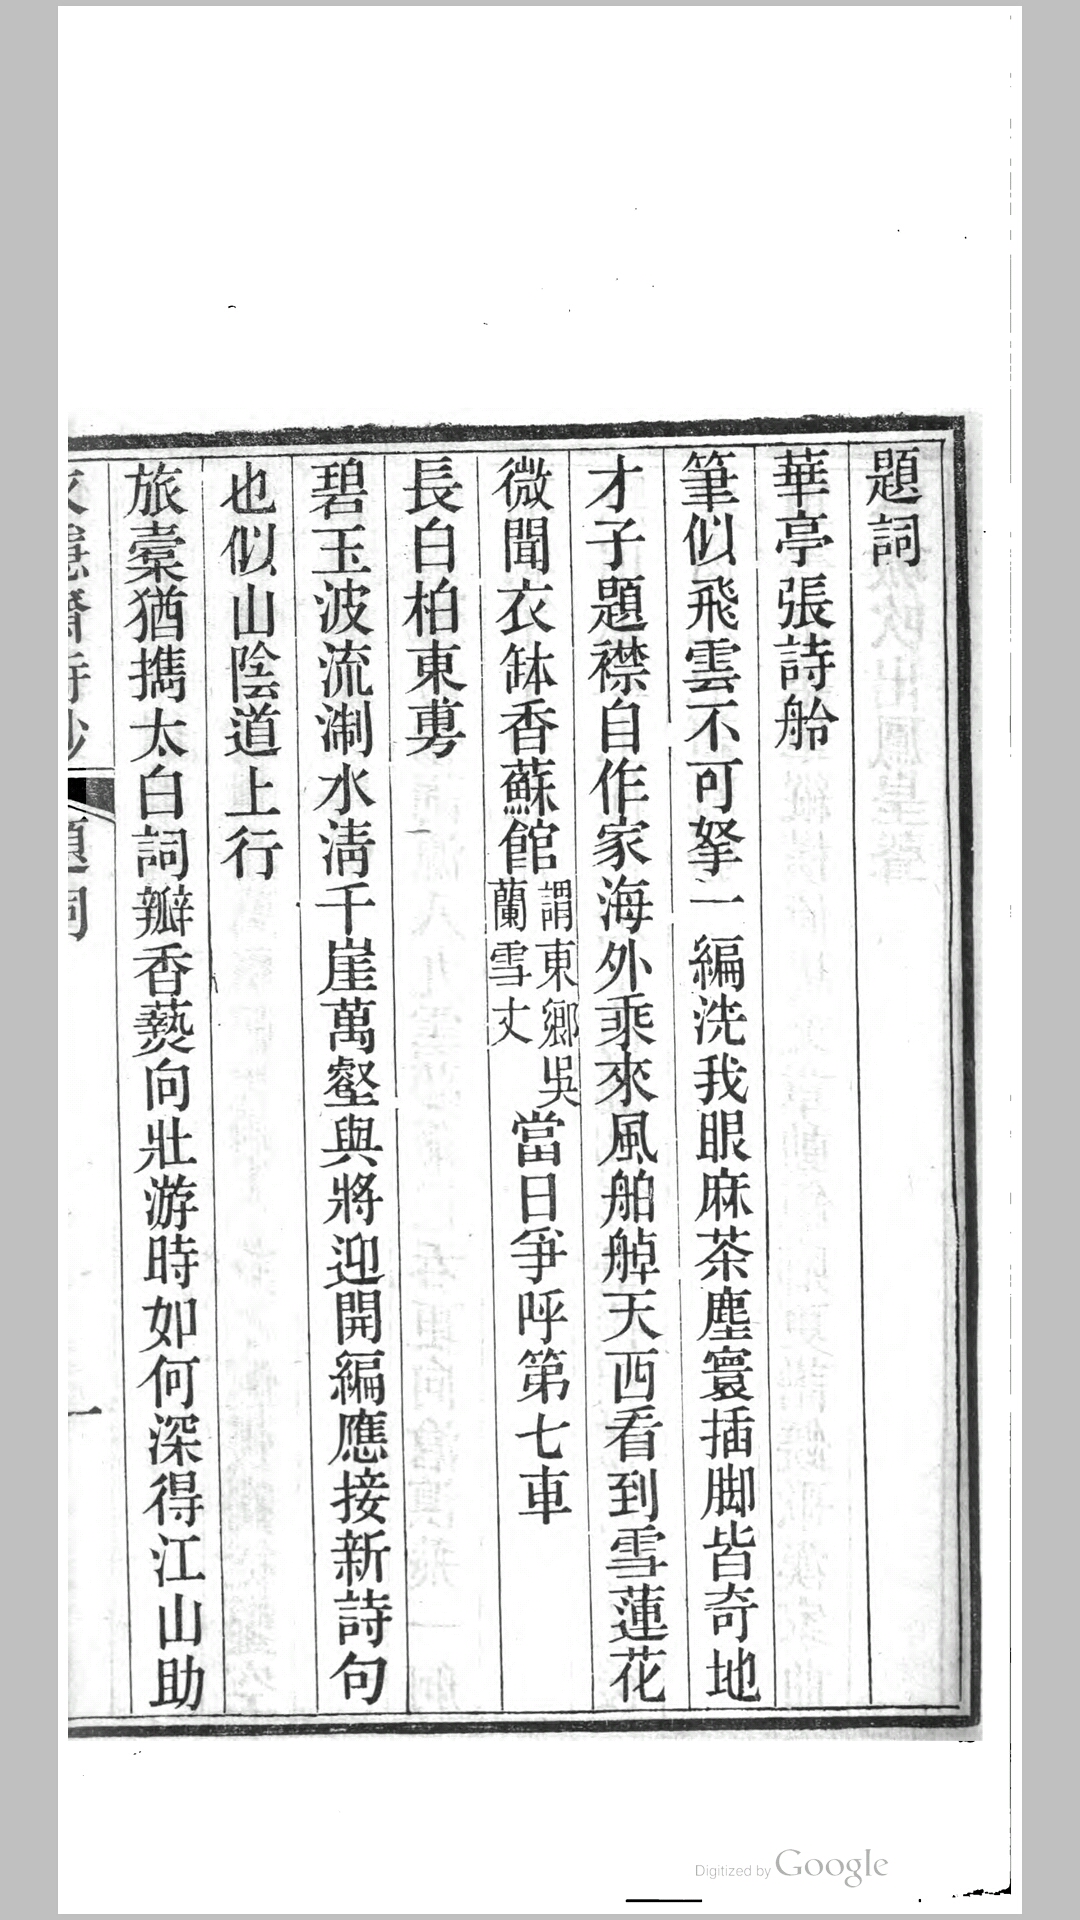 題詞
華亭張詩舲
筆似飛雲不可拏一編洗我眼麻茶塵寰插脚皆奇地
才子題襟自作家海外乘來風舶艊天西看到雪蓮花
微聞衣缽香蘇館謂東鄉吳蘭雪丈當日爭呼第七車
長白柏東旉
碧玉波流淛水淸千崖萬壑與將迎開編應接新詩句
也似山陰道上行
旅槖猶攜太白詞瓣香爇向壯游時如何深得江山助
題詞
一
Digitized by Google